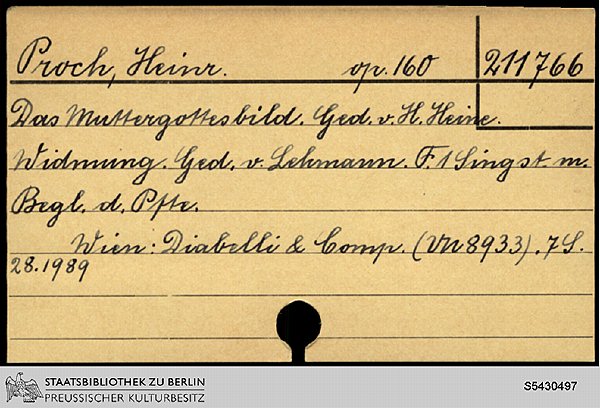 Proch, Heinr. op. 160 211766
Das Muttergottesbild. Ged. v. H. Heine.
Widmung. Ged. v. Lehmann. F. 1 Singst. m.
Begl. d. Pfte.
Wien: Diabelli & Comp. (VN 8933). 7 S.
28.1989
STAATSBIBLIOTHEK ZU BERLIN
PREUSSISCHER KULTURBESITZ
S5430497